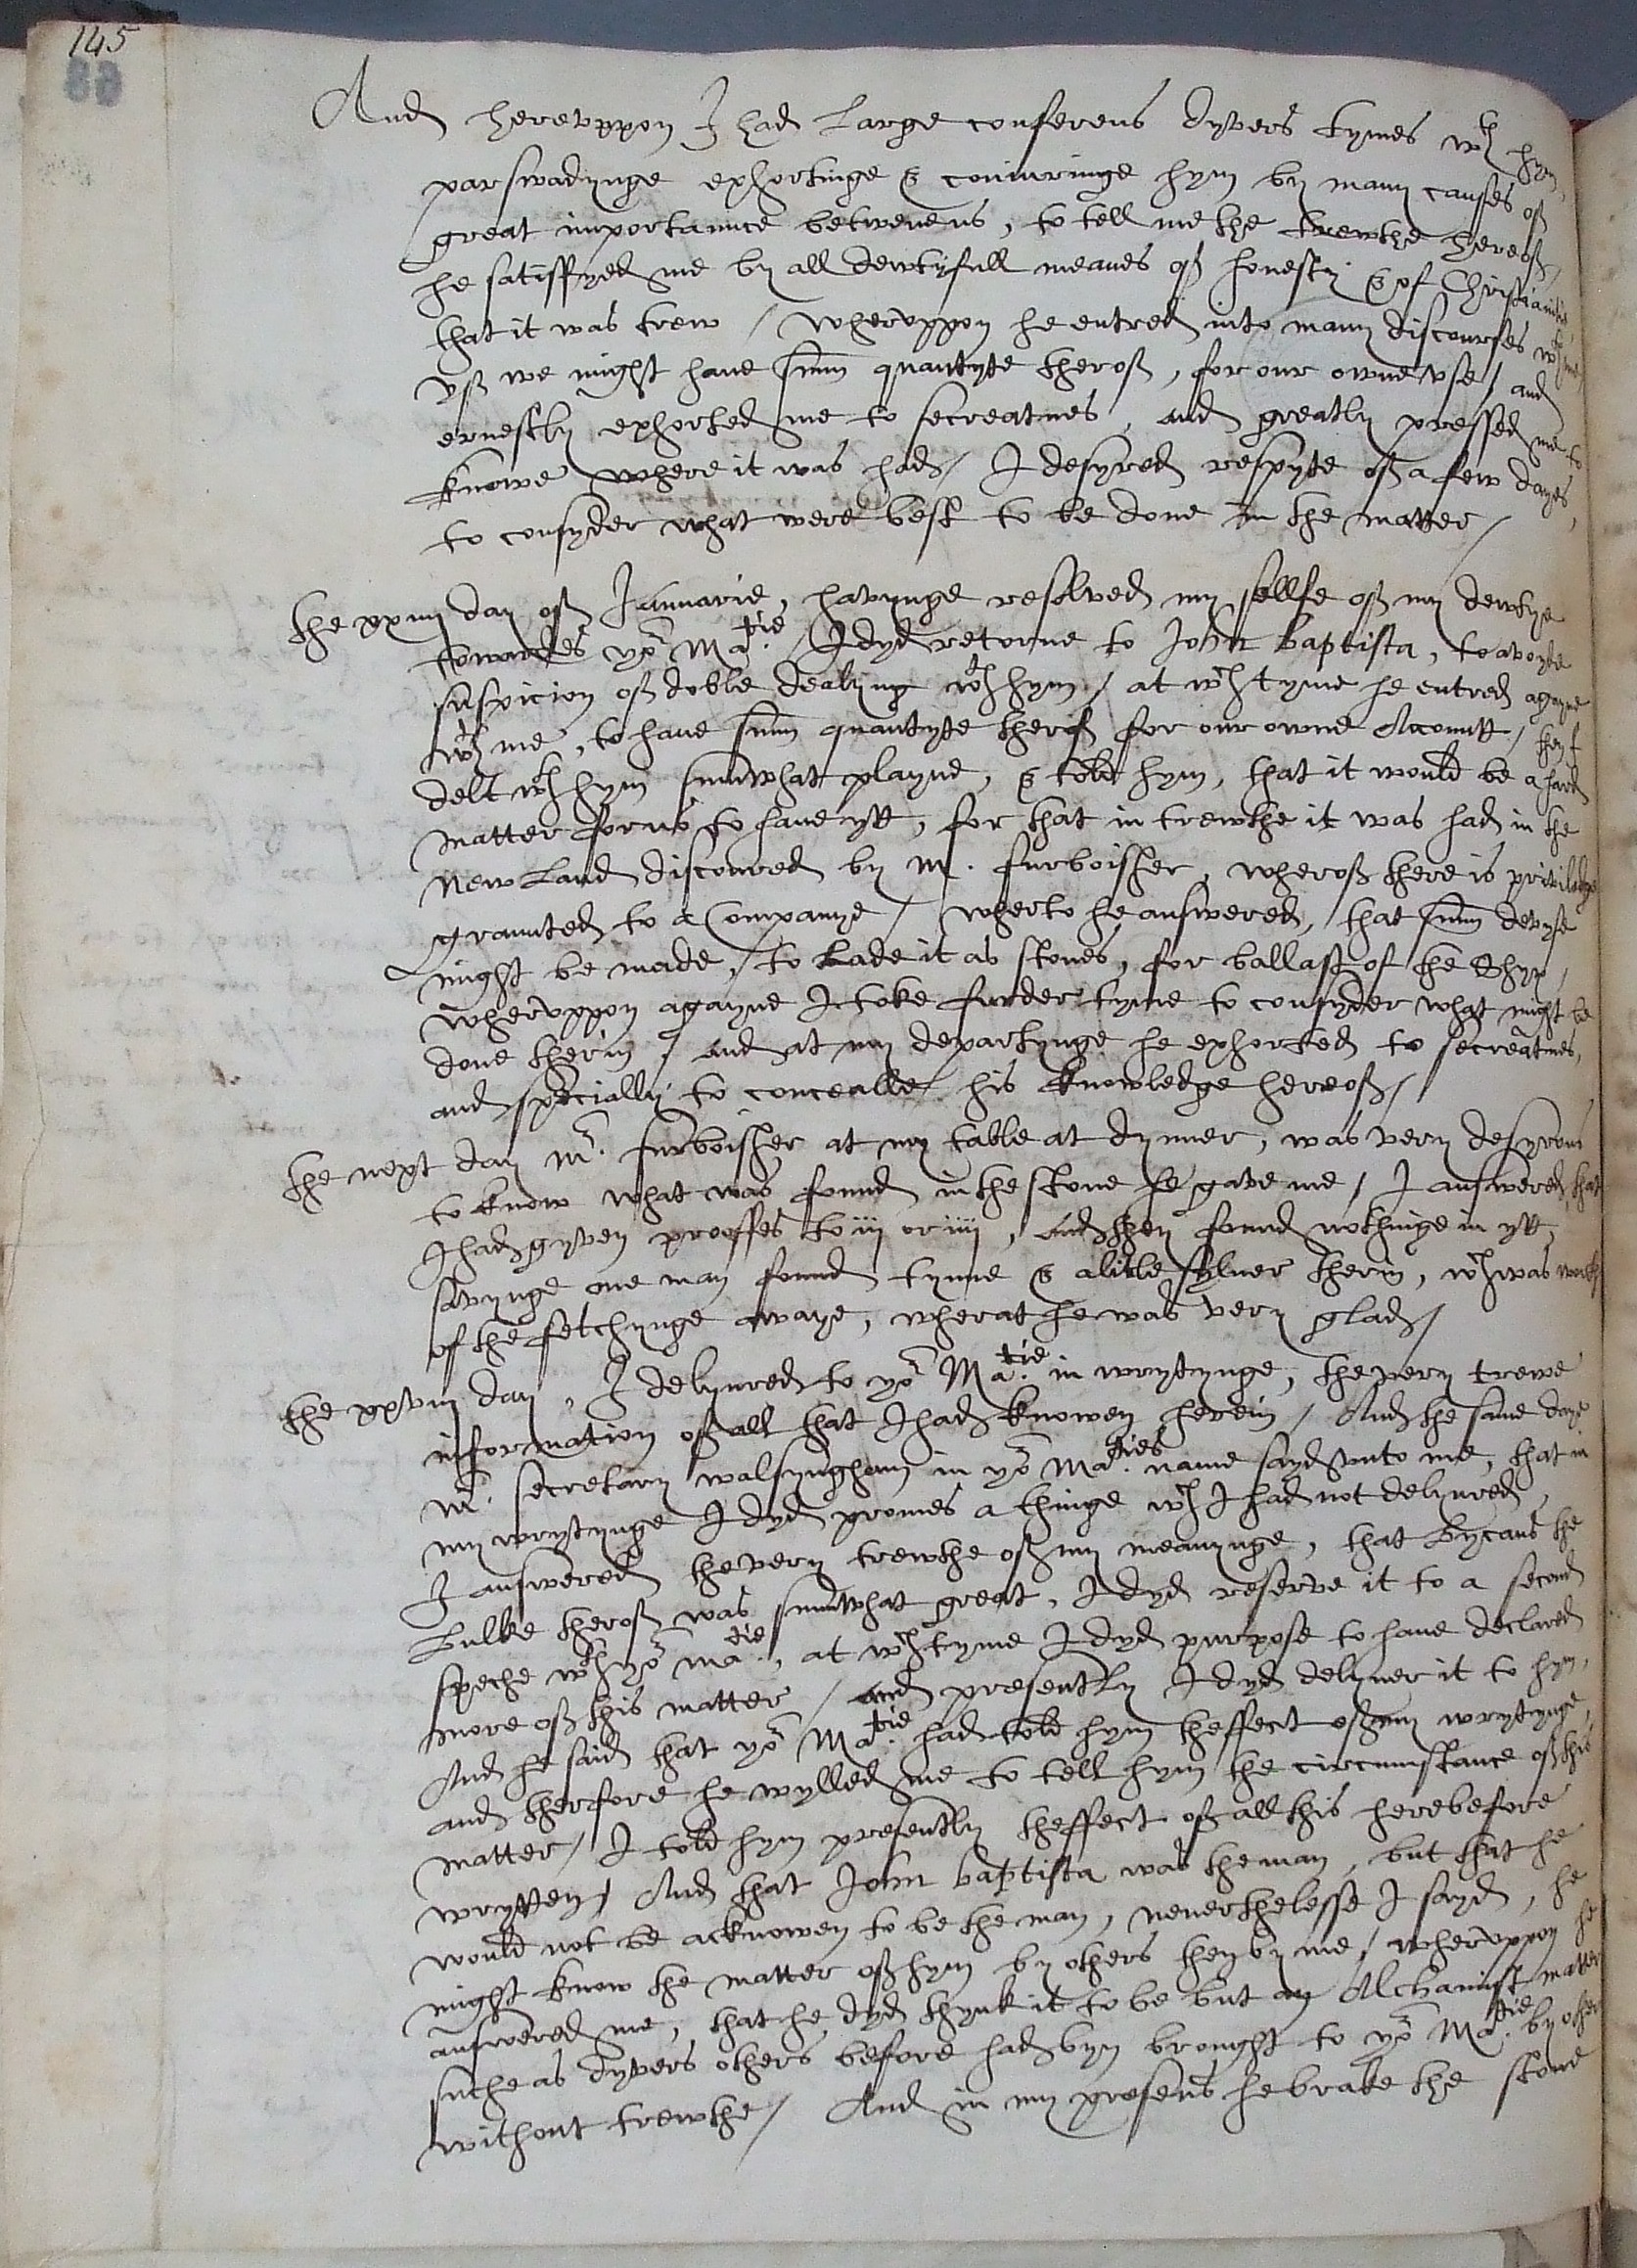 145
88
And herevppon I had Large conferens dyvers tymes wth hym,
parswadynge exhortinge & coniuringe hym by many causes of
great importaunce betwene us, to tell me the trewthe hereof,
he satisffyed me by all dewtyfull meanes of honesty & of Christianitie
that it was trew / Wheruppon he entred into many discourses wth me,
yf we might have sum quantyte therof, for our owne vse / and
ernestly exhorted me to secreatnes, and greatly pressed me to
knowe where it was had / I desyred respyte of a few dayes,
to consyder what were best to be done in the matter /
the xxiiij day of Januarie, havynge resolved my sellfe of my dewtye
towardes yor Ma.tie / I dyd retorne to John Baptista, to avoyde
suspicion of doble dealyng wth hym / at wch tyme he entred agayne
wth me, to have sum quantyte therof for our owne Accountt, then I
delt wth hym sumwhat playne, & told hym, that it would be a hard
matter for us to have ytt, for that in trewthe it was had in the
new Land discovred by M. Furboisher, wherof there is priviledge
graunted to a Companye / wherto he answered, that sum devyse
might be made, to Lade it as stones, for ballast of the Shyp,
wheruppon agayne I toke furder tyme to consyder what might be
done therin / and at my departynge he exhorted to secreatnes,
and specially to concealle his knowledge hereof /
the next day Mr. Furboisher at my table at dynner, was very desyrous
to know what was found in the stone he gave me / I answered that
I had gyven prooffes to iij or iiij, and they found nothinge in ytt,
savynge one man found tynne & a litle sylver therin, wch was worth
of the fetchynge awaye, wherat he was very glad /
the xxviij day, I delyvred to yor Ma.tie in wrytynge, the very trewe
information of all that I had knowen herein / And the same daye
Mr. secretary walsyngham in yor Ma.ties name sayd vnto me, that in
my wrytynge I dyd promes a thinge wch I had not delyvred,
I answered the very trewthe of my meanynge, that bycaus the
Bulke therof was sumwhat great, I dyd reserve it to a second
speche wth yor Ma.tie, at wch tyme I dyd purpose to have declared
more of this matter / and presently I dyd delyver it to hym,
And he said that yor Ma.tie had told hym theffect of my wrytynge,
and therfore he wylled me to tell hym the circumstance of this
matter / I told hym presently theffect of all this herebefore
wrytten / And that John Baptista was the man, but that he
would not be acknowen to be the man, neverthelesse I sayd, he
might know the matter of hym by others then by me / wheruppon he
answered me, that he dyd thynk it to be but an Alchamist matter
suche as dyvers others before had byn brought to yor Ma.tie by others
without trewthe / And in my presens he brake the stone